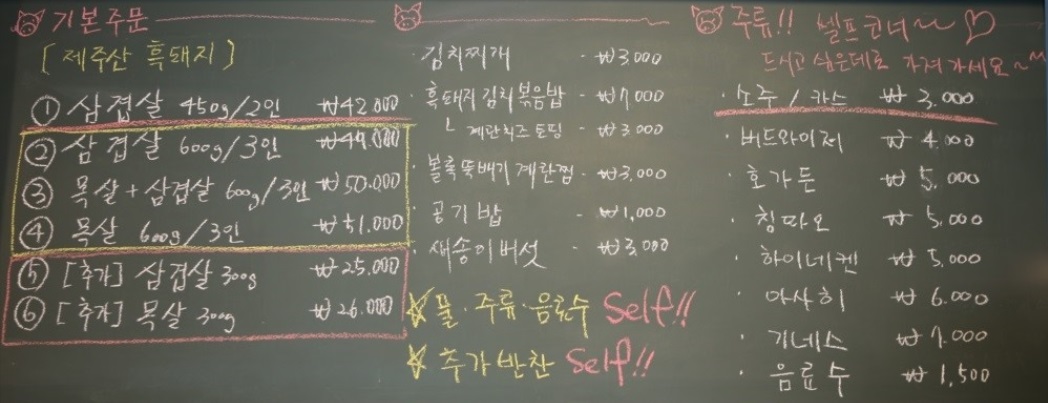 기본주문
[ 제주산 흑돼지 ]
① 삼겹살 450g/2인 ₩42.000
② 삼겹살 600g/3인 ₩49.000
③ 목살+삼겹살 600g/3인 ₩50.000
④ 목살 600g/3인 ₩51.000
⑤ [추가] 삼겹살 300g ₩25.000
⑥ [추가] 목살 300g ₩26.000
· 김치찌개 - ₩3,000
· 흑돼지김치볶음밥 - ₩7,000
└ 계란치즈토핑 - ₩3,000
· 볼록뚝배기계란찜 - ₩3,000
· 공기밥 - ₩1,000
· 새송이버섯 - ₩3,000
☆ 물·주류·음료수 Self!!
☆ 추가반찬 Self!!
주류!! 셀프코너~~ ♡
드시고 싶은데로 가져가세요~~
· 소주 / 카스 ₩ 3,000
· 버드와이저 ₩ 4.000
· 호가든 ₩ 5,000
· 칭따오 ₩ 5,000
· 하이네켄 ₩ 5,000
· 아사히 ₩ 6.000
· 기네스 ₩ 7.000
· 음료수 ₩ 1,500